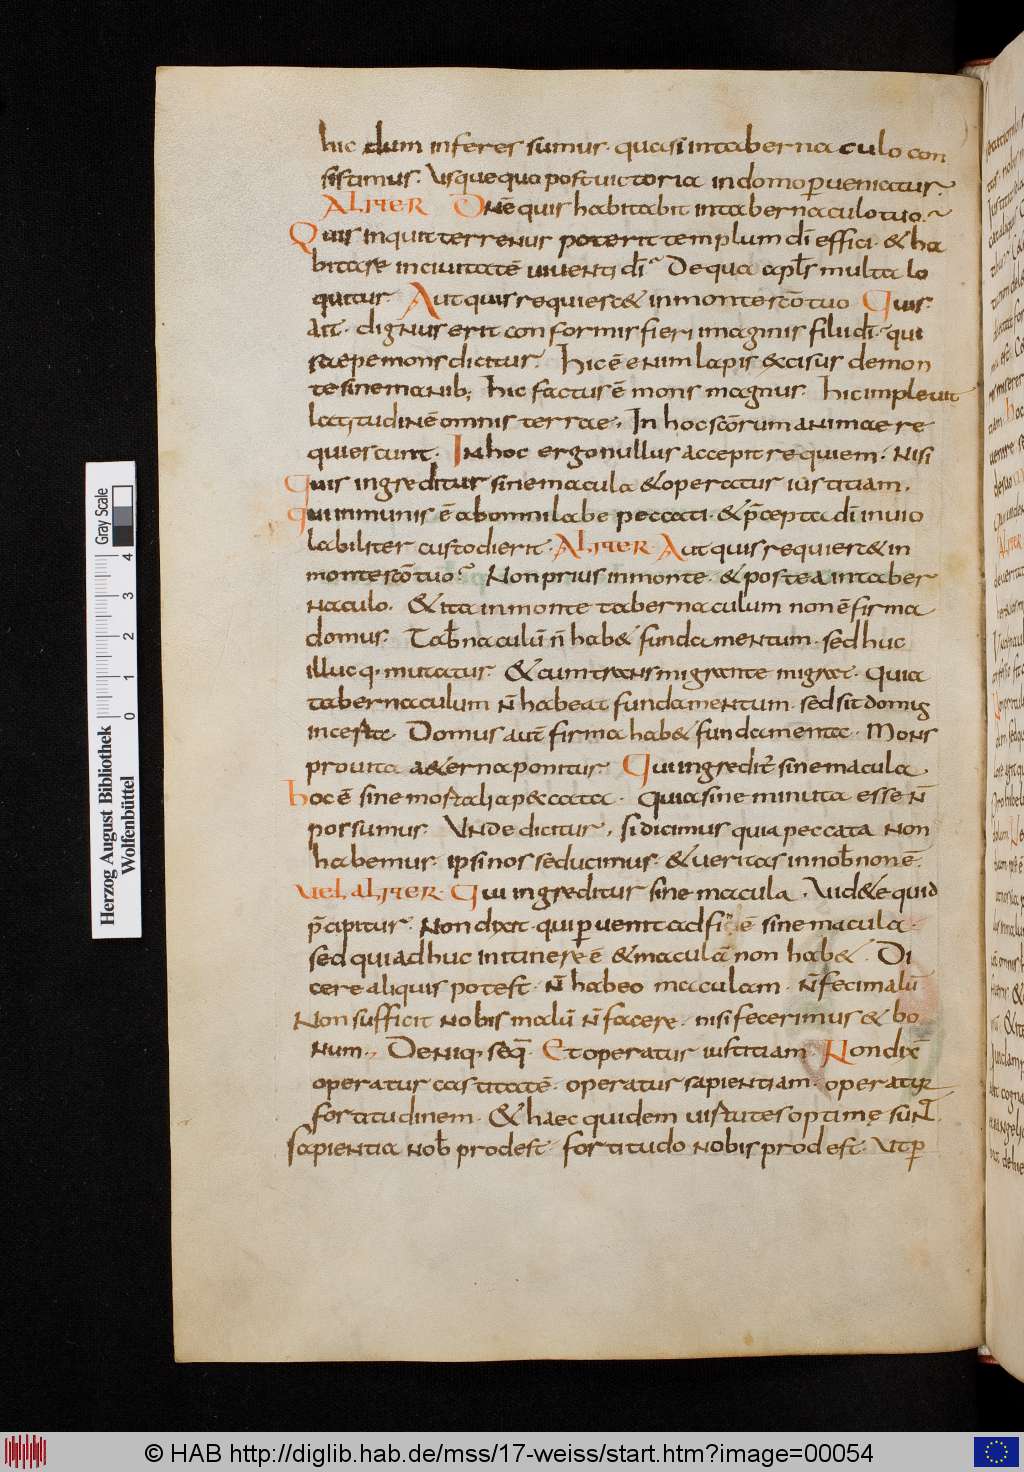 hic dum inferes sumus· quasi intabernaculo con
sistimus· Usquequo postvictoria indomo pveniatur·
ALITER DNE quis habitabit intabernaculo tuo·
Quis inquit terrenus poterit templum dī effici· & ha
bitare incivitatē viventi dī· Dequa apls multa lo
quitur· Aut quis requiesc& inmonte scō tuo Quis·
ait· dignus erit conformis fieri imaginis filii dī· qui
saepe mons dicitur· Hic ē enim lapis excisus demon
te sine manib; hic factus ē mons magnus· hic implevit
latitudinē omnis terrae, In hoc scōrum animae re
quiescunt· In hoc ergo nullus accepit requiem· Nisi
Quis ingreditur sine macula & operatur iustitiam·
qui inmunis ē abomni labe peccati· & pcepta dī invio
labiliter custodierit· ALITER· Aut quis requiesc& in
monte scō tuo? Non prius inmonte· & postea intaber
naculo· & ita inmonte tabernaculum non ē firma
domus· Tabnaculū n̄ hab& fundamentum· sed huc
illucq· mutatur· & cum trans migrante migrat· Quia
tabernaculum n̄ habeat fundamentum· sed sit domig
incerta· Domus aut firma hab& fundamenta· Mons
pro vita aeterna ponitur· Qui ingredit sine macula·
hoc ē sine mortalia peccata· Quia sine minuta esse n̄
possumus· Unde dicitur, si dicimus quia peccata non
habemus· ipsi nos seducimus· & veritas in nob non ē·
VEL ALITER· Qui ingreditur sine macula· Vid&e quid
pcipitur· Non dixit· qui pvenit ad finē ē sine macula·
sed qui adhuc initinere ē & maculā non hab&· Di
cere aliquis potest· n̄ habeo maculam· n̄ feci malū
Non sufficit nobis malū n̄ facere· nisi fecerimus & bo
num·, Deniq, seq· Et operatur iustitiam· Non dix
operatur castitatē· operatur sapientiam· operatur
fortitudinem· & haec quidem virtutes optimę sunt·
Sapientia nob prodest· fortitudo nobis prodest· Ut p
Gray Scale
4 3 2 1 0
Herzog August Bibliothek
Wolfenbüttel
© HAB http://diglib.hab.de/mss/17-weiss/start.htm?image=00054